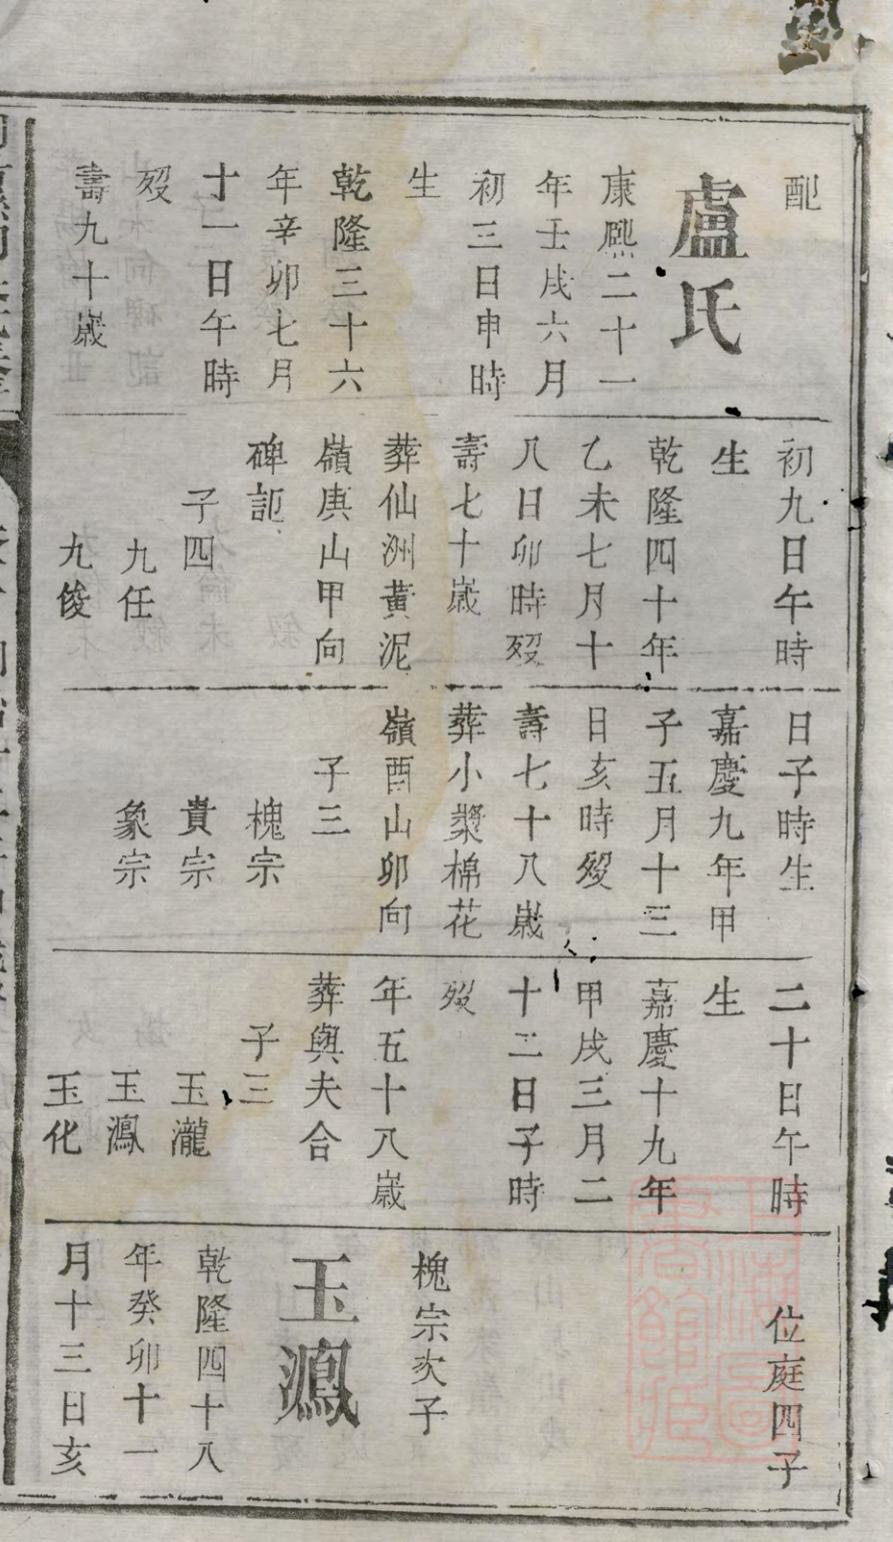 配
盧氏
康熙二十一
年壬戌六月
初三日申時
生
乾隆三十六
年辛卯七月
十一日午時
歿
壽九十歲
初九日午時
生
乾隆四十年
乙未七月十
八日卯時歿
壽七十歲
葬仙洲黃泥
嶺庚山甲向
碑記
子四
九任
九俊
日子時生
嘉慶九年甲
子五月十三
日亥時歿
壽七十八歲
葬小槳棉花
嶺酉山卯向
子三
槐宗
貴宗
象宗
二十日午時
生
嘉慶十九年
甲戌三月二
十二日子時
歿
年五十八歲
葬與夫合
子三
玉瀧
玉鴻
玉化
位庭四子
槐宗次子
玉鴻
乾隆四十八
年癸卯十一
月十三日亥